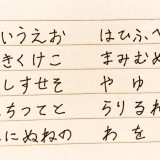 いうえお はひふへ
きくけこ まみむめ
しすせそ や ゆ
ちつてと らりるれ
にぬねの わ を